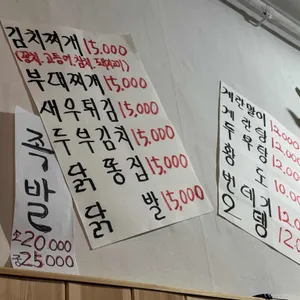 김치찌개 15,000
(꽁치, 고등어, 참치, 돼지고기)
부대찌개 15,000
새우튀김 15,000
두부김치 15,000
닭똥집 15,000
닭발 15,000
족발
소 20,000
중 25,000
계란말이 12,000
계란탕 12,000
두부탕 12,000
황도 10,000
번데기
오뎅 12,0